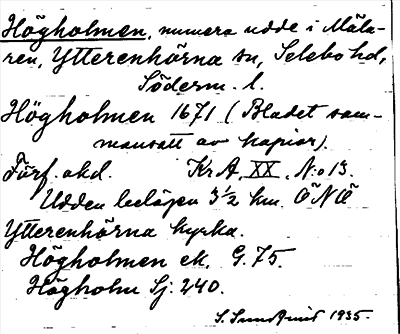 Högholmen, numera udde i Mäla-
ren, Ytterenhörna sn, Selebo hd,
Söderm. l.
Högholmen 1671 (Bladet sam-
mansatt av kopior).
Förf. okd. Kr A, XX, N:o 13.
Udden belägen 3½ km. ÖNÖ
Ytterenhörna kyrka.
Högholmen ek. G. 75.
Högholm Sj. 240.
S. Sundquist 1935.